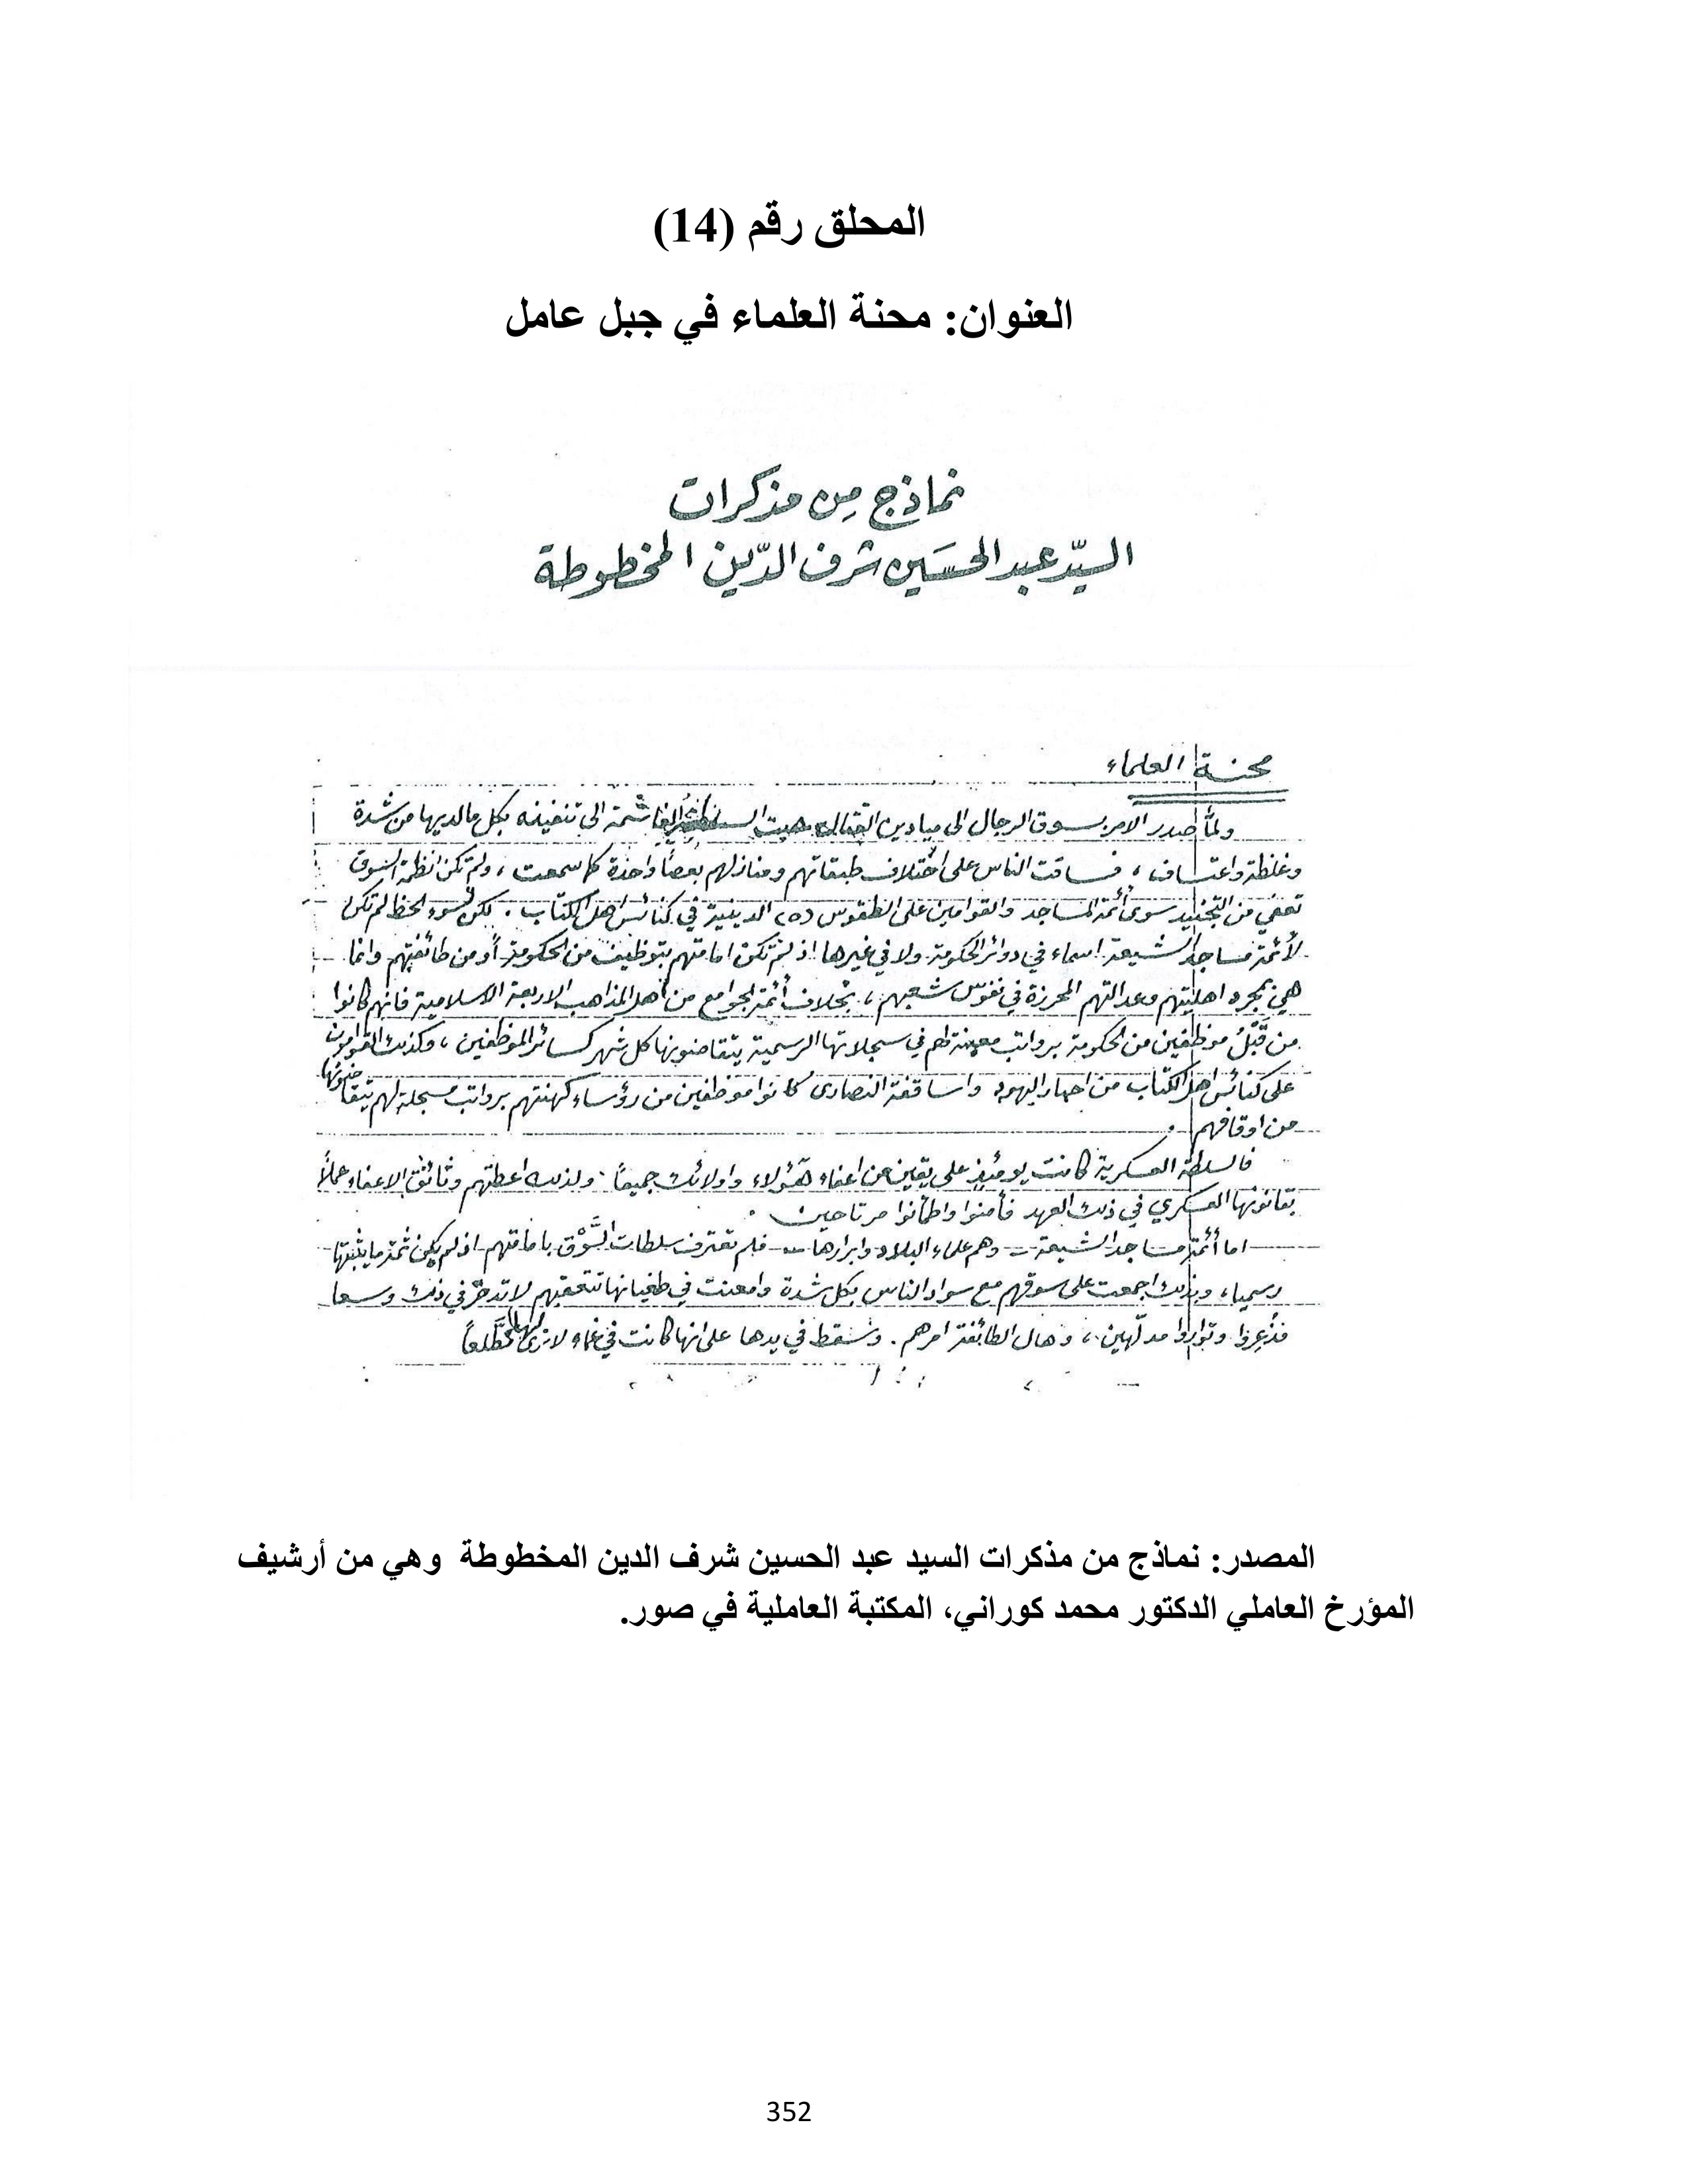 المحلق رقم (14)
العنوان: محنة العلماء في جبل عامل
نماذج من مذكرات
السيّد عبد الحسَين شرف الدّين المخطوطة
محنة العلماء
ولمّا صدر الامر بسوق الرجال الى ميادين القتال هبت السلطة الغاشمة الى تنفيذه بكل ما لديها من شدة
وغلظة واعتساف، فساقت الناس على اختلاف طبقاتهم ومنازلهم بعصًا واحدة كما سمعت، ولم تكن انظمة السوق
تعفي من التجنيد سوى أئمة المساجد والقوامين على الطقوس (٥) الدينية في كنائس اهل الكتاب. لكن لسوء الحظ لم تكن
لأئمة مساجد الشيعة اسماء في دوائر الحكومة ولا في غيرها اذ لم تكن امامتهم بتوظيف من الحكومة أو من طائفتهم وانما
هي بمجرد اهليتهم وعدالتهم المحرزة في نفوس شعبهم، بخلاف أئمة الجوامع من أهل المذاهب الاربعة الاسلامية فانهم كانوا
من قَبْلُ موظفين من الحكومة برواتب معينة لهم في سجلاتها الرسمية يتقاضونها كل شهر كسائر الموظفين، وكذلك القوامون
على كنائس اهل الكتاب من احبار اليهود واساقفة النصارى كانوا موظفين من رؤساء كهنتهم برواتب مسجلة لهم يتقاضونها
من اوقافهم.
فالسلطة العسكرية كانت يومئذٍ على يقين من اعفاء هٓؤلاء واولائك جميعاً. ولذلك اعطتهم وثائق الاعفاء عملاً
بقانونها العسكري في ذلك العهد فأمنوا واطمأنوا مرتاحين.
اما أئمة مساجد الشيعة – وهم علماء البلاد وابرارها – فلم تعترف سلطات السَّوْق بامامتهم اذ لم يكن ثمة ما يثبتها
رسمياً، وبذلك اجمعت على سوقهم مع سواد الناس بكل شدة وامعنت في طغيانها تتعقبهم لا تدخر في ذلك وسعا
فذُعِروا وتواروا مدلّهين، وهال الطائفة امرهم. وسُقط في يدها على انها كانت في غماء لا ترى لها مُطَّلعاً
المصدر: نماذج من مذكرات السيد عبد الحسين شرف الدين المخطوطة وهي من أرشيف
المؤرخ العاملي الدكتور محمد كوراني، المكتبة العاملية في صور.
352